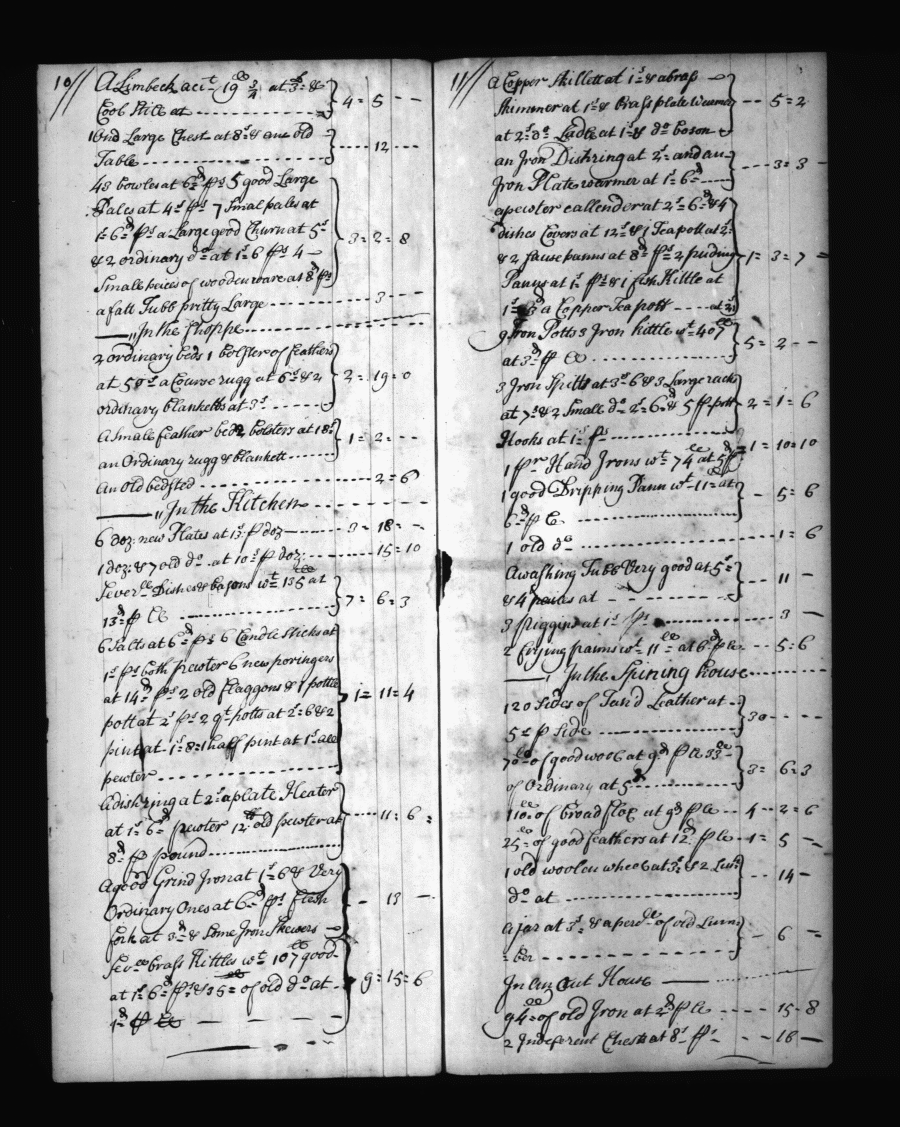 10//
A Limbeck acit 19lb 3/4 at 3s &
Cool Still at ---- } 4 = 5 --
1 Ond Large Chest at 8s & one old
Table ---- } ---- 12 ---
48 bowles at 6d ps 5 good Large
Pales at 4s ps 7 Smal pales at
1s=6d ps a Large good Churn at 5s
& 2 ordinary do at 1s=6 ps 4 -
Small peices of wooden ware at 8d ps } 3 = 2 = 8
a fatt Tubb pritty Large ---- 3 --
In the Shoppe ----
2 ordinary beds 1 bolster of feathers
at 50s a Course rugg at 6s & 2
ordinary blanketts at 3s } 2 = 19 = 0
A Smale feather bed 2 bolsters at 18s
an Ordinary rugg & blankett } 1 = 2 = --
An old bedsted ---- 2 = 6
In the Kitchen ----
6 doz: new Plates at 13s p doz ---- 3 = 18 = --
1 doz: & 7 old do at 10s p doz: ---- 15 = 10
Severll Dishes & basons wt 135lb at
13d p lb ---- } 7 = 6 = 3
6 Salts at 6d ps 6 Candle Sticks at
1s ps both pewter 6 new poringers
at 14d ps 2 old flaggons & 1 pottle
pott at 2s ps 2 qt potts at 2s=6 & 2
pint at 1s=8 = 1 half pint at 1s all
pewter ---- } 1 = 11 = 4
A dishring at 2s a plate Heater
at 1s=6d pewter 12lb old pewter at
8d p pound ---- } ---- 11 = 6 =
A good Grind Iron at 1s=6 & Very
Ordinary Ones at 6d ps flesh
fork at 3d & Some Iron Skewers } - 13 -
Sevll brass Kittles wt 107lb good
at 1s=6d ps & 35lb of old do at -
1d p lb ---- } 9 = 15 = 6
11//
A Copper Skillett at 1s & a brass
Skimmer at 1s & brass plate Warmer
at 2s do Ladle at 1s & do bason } - 5 = 2
an Iron Dishring at 2s and an
Iron Plate warmer at 1s=6d } --- 3 = 3 -
a pewter callender at 2s=6d & 4
dishes Covers at 12s & 1 Teapott at 2s
& 2 sause panns at 8d ps 2 puding
Panns at 1s ps & 1 fish Kittle at
1s a Copper Teapott ---- at 2s } 1 = 3 = 7 =
9 Iron Potts 3 Iron Kittle wt 407lb
at 3d p lb ---- } 5 = 2 --
3 Iron Spitts at 3s=6 & 3 Large racks
at 7s & 2 Small do 2s=6d & 5 p pott
Hooks at 1s ps ---- } 2 = 1 = 6
1 pr Hand Irons wt 74lb at 5d } 1 = 10 = 10
1 good Dripping Pann wt 11lb at
6d p lb ---- } - 5 = 6
1 old do ---- 1 = 6
A washing Tubb Very good at 5s
& 4 at ---- } 11 -
3 Piggins at 1s ps ---- 3 -
2 frying panns wt 11lb at 6d p lb -- 5 = 6
In the Spining house ----
120 Sides of Tand Leather at
5s p Side ---- } 30 ----
70lb of good wool at 9d p lb 33lb
of Ordinary at 5d ---- } 3 = 6 = 3
110lb of broad flax at 9d p lb -- 4 - 2 = 6
25lb of good feathers at 12d p lb -- 1 = 5 --
1 old woolen wheel at 3s & 2 Linn
do at ---- } - 14 -
A jar at 3s & a of old Lum
=ber ---- } - 6 --
In An Out House ----
94lb of old Iron at 2d p lb ---- 15 = 8
2 Indeferent Chests at 8s ps --- 16 --